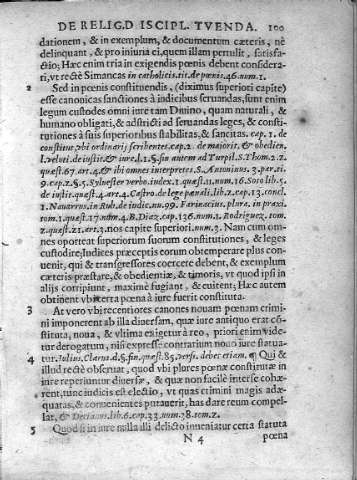 DE RELIG.D ISCIPL. TVENDA. 100
dationem, & in exemplum, & documentum cæteris, nè
delinquant, & pro iniuria ei, quem illam pertulit, satisfa-
ctio; Hæc enim tria in exigendis pœnis debent considera-
ri, vt rectè Simancas in catholicis.tit.de pœnis.46.num.1.
2 Sed in pœnis constituendis, (diximus superiori capite)
esse canonicas sanctiones à iudicibus seruandas, sunt enim
legum custodes omni iure tam Diuino, quam naturali, &
humano obligati, & adstricti ad seruandas leges, & consti-
tutiones à suis superioribus stabilitas, & sancitas. cap. 1. de
constitut. vbi ordinarij scribentes. cap. 2. de maiorit. & obedien.
l. veluti. de iustit. & iure. l. 1. §. fin autem ad Turpil. S. Thom. 2. 2.
quæst. 67. art. 4. & ibi omnes interpretes. S. Antoninus. 3. par. ti.
9. cap. 2. §. 5. Syluester verbo. index. 1. quæst. 11. num. 16. Soto lib. 5.
de iustit. quæst. 4. art. 4. Castro. de lege pœnali. lib. 2. cap. 13. concl.
1. Nauarrus in Rub. de iudic. nu. 99. Farinacius plura. in praxi.
tom. 1. quæst. 17. num. 4. B. Diaz. cap. 136. num. 1. Rodriguez. tom.
2. quæst. 21. art. 3. nos capite superiori. num 3. Nam cum om-
nes oporteat superiorum suorum constitutiones, & leges
custodire; Iudices præceptis eorum obtemperare plus con-
uenit, qui & transgressores coercere debent, & exemplum
cæteris præstare, & obedientiæ, & timoris, vt quod ipsi in
alijs corripiunt, maximè fugiant, & euitent; Hæc autem
obtinent vbi certa pœna à iure fuerit constituta.
3 At vero vbi recentiores canones nouam pœnam crimi-
ni imponerent ab illa diuersam, quæ iure antiquo erat cō-
stituta, noua, & vltima exigetur à reo, priori enim vide-
tur derogatum, nisi expressè contrarium nouo iure statua-
tur. Iulius, Clarus. d. §. fin. quæst. 85. vers. debet etiam. ¶ Qui &
4 illud rectè obseruat, quod vbi plures pœnæ constitutæ in
iure reperiuntur diuersæ, & quæ non facilè interse cohæ-
rent, tunc iudicis est electio, vt quas crimini magis adæ-
quatas, & conuenientes putauerit, has dare reum compel-
lat, & Decianus. lib. 6. cap. 33. num. 38. tom. 2.
5 Quod si in iure nulla illi delicto inueniatur certa statuta
N 4 pœna